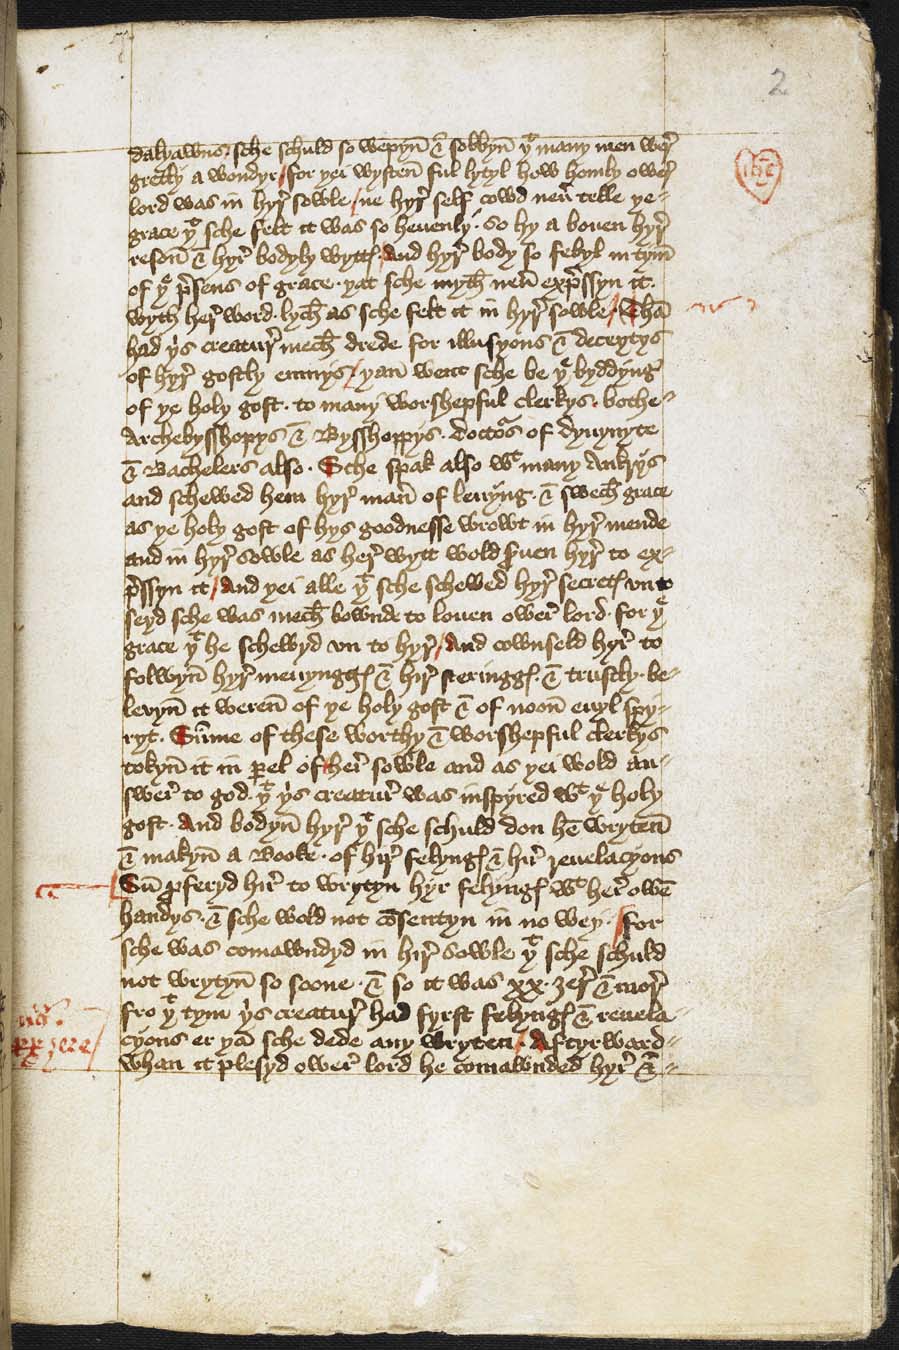 2
dalyawns, sche schuld so wepyn̄ & sobbyn̄ yᵗ many men wer̛
gretly a wondyr / for yei wysten̄ ful lytyl how homly ower̛
ihc
lord was in hyr̛ sowle / ne hyr̛ self cowd neư telle ye⸗
grace yᵗ sche felt it was so heuenly · so hy a bouen hyr̛
reson̄ & hyr̛ bodyly wyttꝭ / And hyr̛ body so febyl in tym̄
of yᵉ p̛sens of grace · yat sche mytħ neư exp̛ssyn it ·
wyth her̛ word · lycħ as sche felt it in hyr̛ sowle / Thā
had yⁱs creatur̛ mecħ drede for illusyons & deceytys
of hyr̛ gostly enmys / yan̄ went sche be yᵉ byddyng̛
of ye holy gost · to many worshepful clerkys · bothe⸗
Archebysshopys & Bysshoppys · doctoʳs of dyuynyte
& Bachelers also · Sche spak also wᵗ many Ankrys
and schewed hem hyr̛ man̄ of leuyng · & swecħ grace
as ye holy gost of hys goodnesse wrowt in hyr̛ mende
and in hyr̛ sowle as her̛ wytt wold s̛uen hyr̛ to ex⸗
p̛ssyn it / And yei alle yᵗ sche schewed hyr̛ secretꝭ vn to
seyd sche was mecħ bownde to louen ower̛ lord · for yᵉ
grace yᵗ he schewyd vn to hyr̛ / And cownseld hyr̛ to
folwyn̄ hyr̛ meuynggꝭ & hir̛ steringgꝭ · & trustly · be⸗
levyn̄ it weren̄ of ye holy gost & of noon̄ euyl spy⸗
ryt · Sūme of these worthy & worshepful clerkys
tokyn̄ it in ꝑel of her̛ sowle and as yei wold an⸗
swer̛ to god · yᵗ yⁱs creatur̛ was inspyred wᵗ yᵉ holy
gost · And bodyn̄ hyr̛ yᵗ sche schuld don hē wryten̄
& makyn̄ a Booke · of hir̛ felyngꝭ & hir̛ reuelacyons
Sū ꝓferyd hir̛ to wrytyn hyr felyngꝭ wᵗ her̛ owē
handys · & sche wold not cōsentyn in no wey · / for
sche was comawndyd in hir̛ sowle yᵗ sche schuld
not wrytyn̄ so soone · & so it was xx · ȝer̛ & mor̛
fro yᵗ tym yⁱs creatur̛ had fyrst felyngꝭ & reuela⸗
xx ȝere
cyons er yā sche dede any wryten / Aftyrward⸗
whan it plesyd ower̛ lord he comawnded hyr̛ &⸗